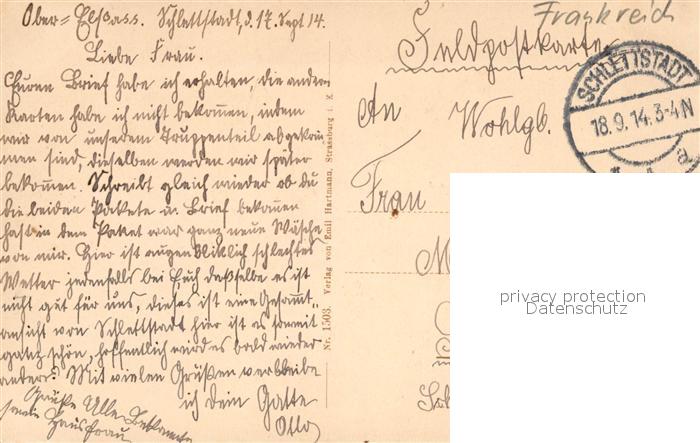 Ober-Elsass. Schlettstadt, d. 17. Sept 14.
Liebe Frau.
Euren Brief habe ich erhalten, die andern
Karten habe ich nicht bekommen, indem
wir von unserem Truppenteil abgekom
men sind, dieselben werden wir später
bekommen. Schreibt gleich wieder ob du
die beiden Pakete u. Brief bekommen
hast in dem Paket war ganz neue Wäsche
von mir. Hier ist augenblicklich schlechtes
Wetter jedenfalls bei Euch daßselbe es ist
nicht gut für uns, dieses ist eine Gesamt-
ansicht von Schlettstadt hier ist es somit
ganz schön, hoffentlich wird es bald wieder
anders? Mit vielen Grüßen verbleibe
ich dein Gatte
Otto
Grüße Alle Bekannte
sowie Hausfrau
Nr. 1503. Verlag von Emil Hartmann, Strassburg i. E.
Frankreich
Feldpostkarte
SCHLETTSTADT
18.9.14.3-4N
a
An Wohlgb.
Frau
M
privacy protection
Datenschutz